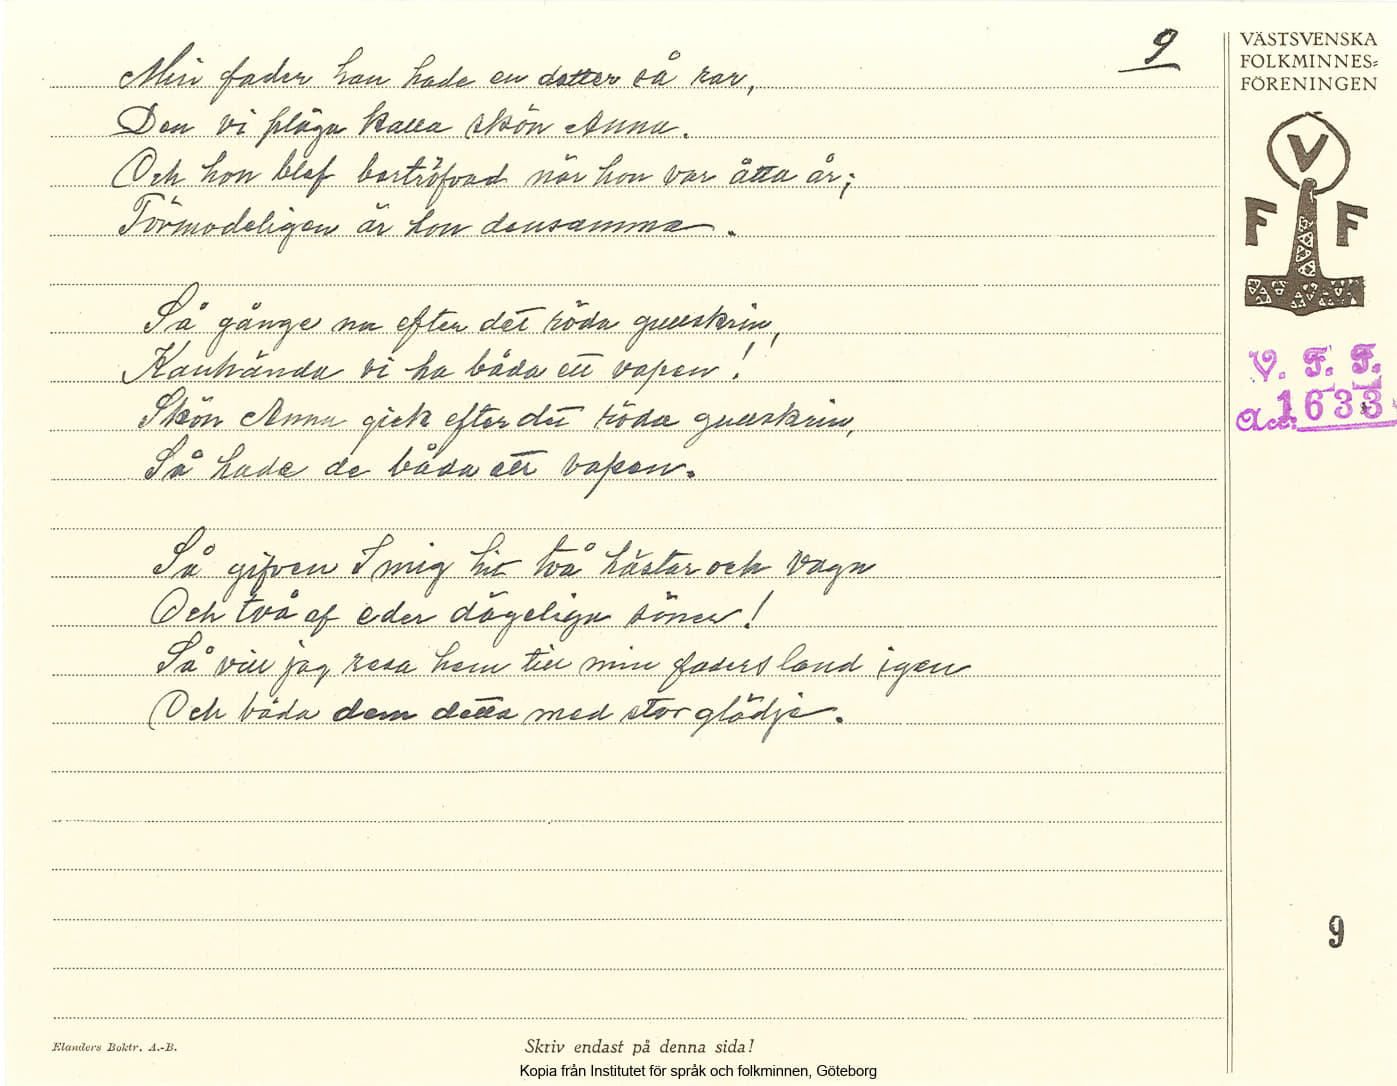 9
Min fader han hade en dotter så rar,
Den vi pläga kalla skön Anna.
Och hon blef bortröfvad när hon var åtta år;
Förmodeligen är hon densamma.
Så gånge nu efter det röda gullskrin,
Kanhända vi ha båda ett vapen!
Skön Anna gick efter det röda gullskrin,
Så hade de båda ett vapen.
Så gifven I mig hit två hästar och vagn
Och två af eder dägeliga söner!
Så vill jag resa hem till min faders land igen
Och båda dem detta med stor glädje.
VÄSTSVENSKA
FOLKMINNES=
FÖRENINGEN
V
F F
V. F. F.
Acc: 1633
9
Elanders Boktr. A.-B.
Skriv endast på denna sida!
Kopia från Institutet för språk och folkminnen, Göteborg